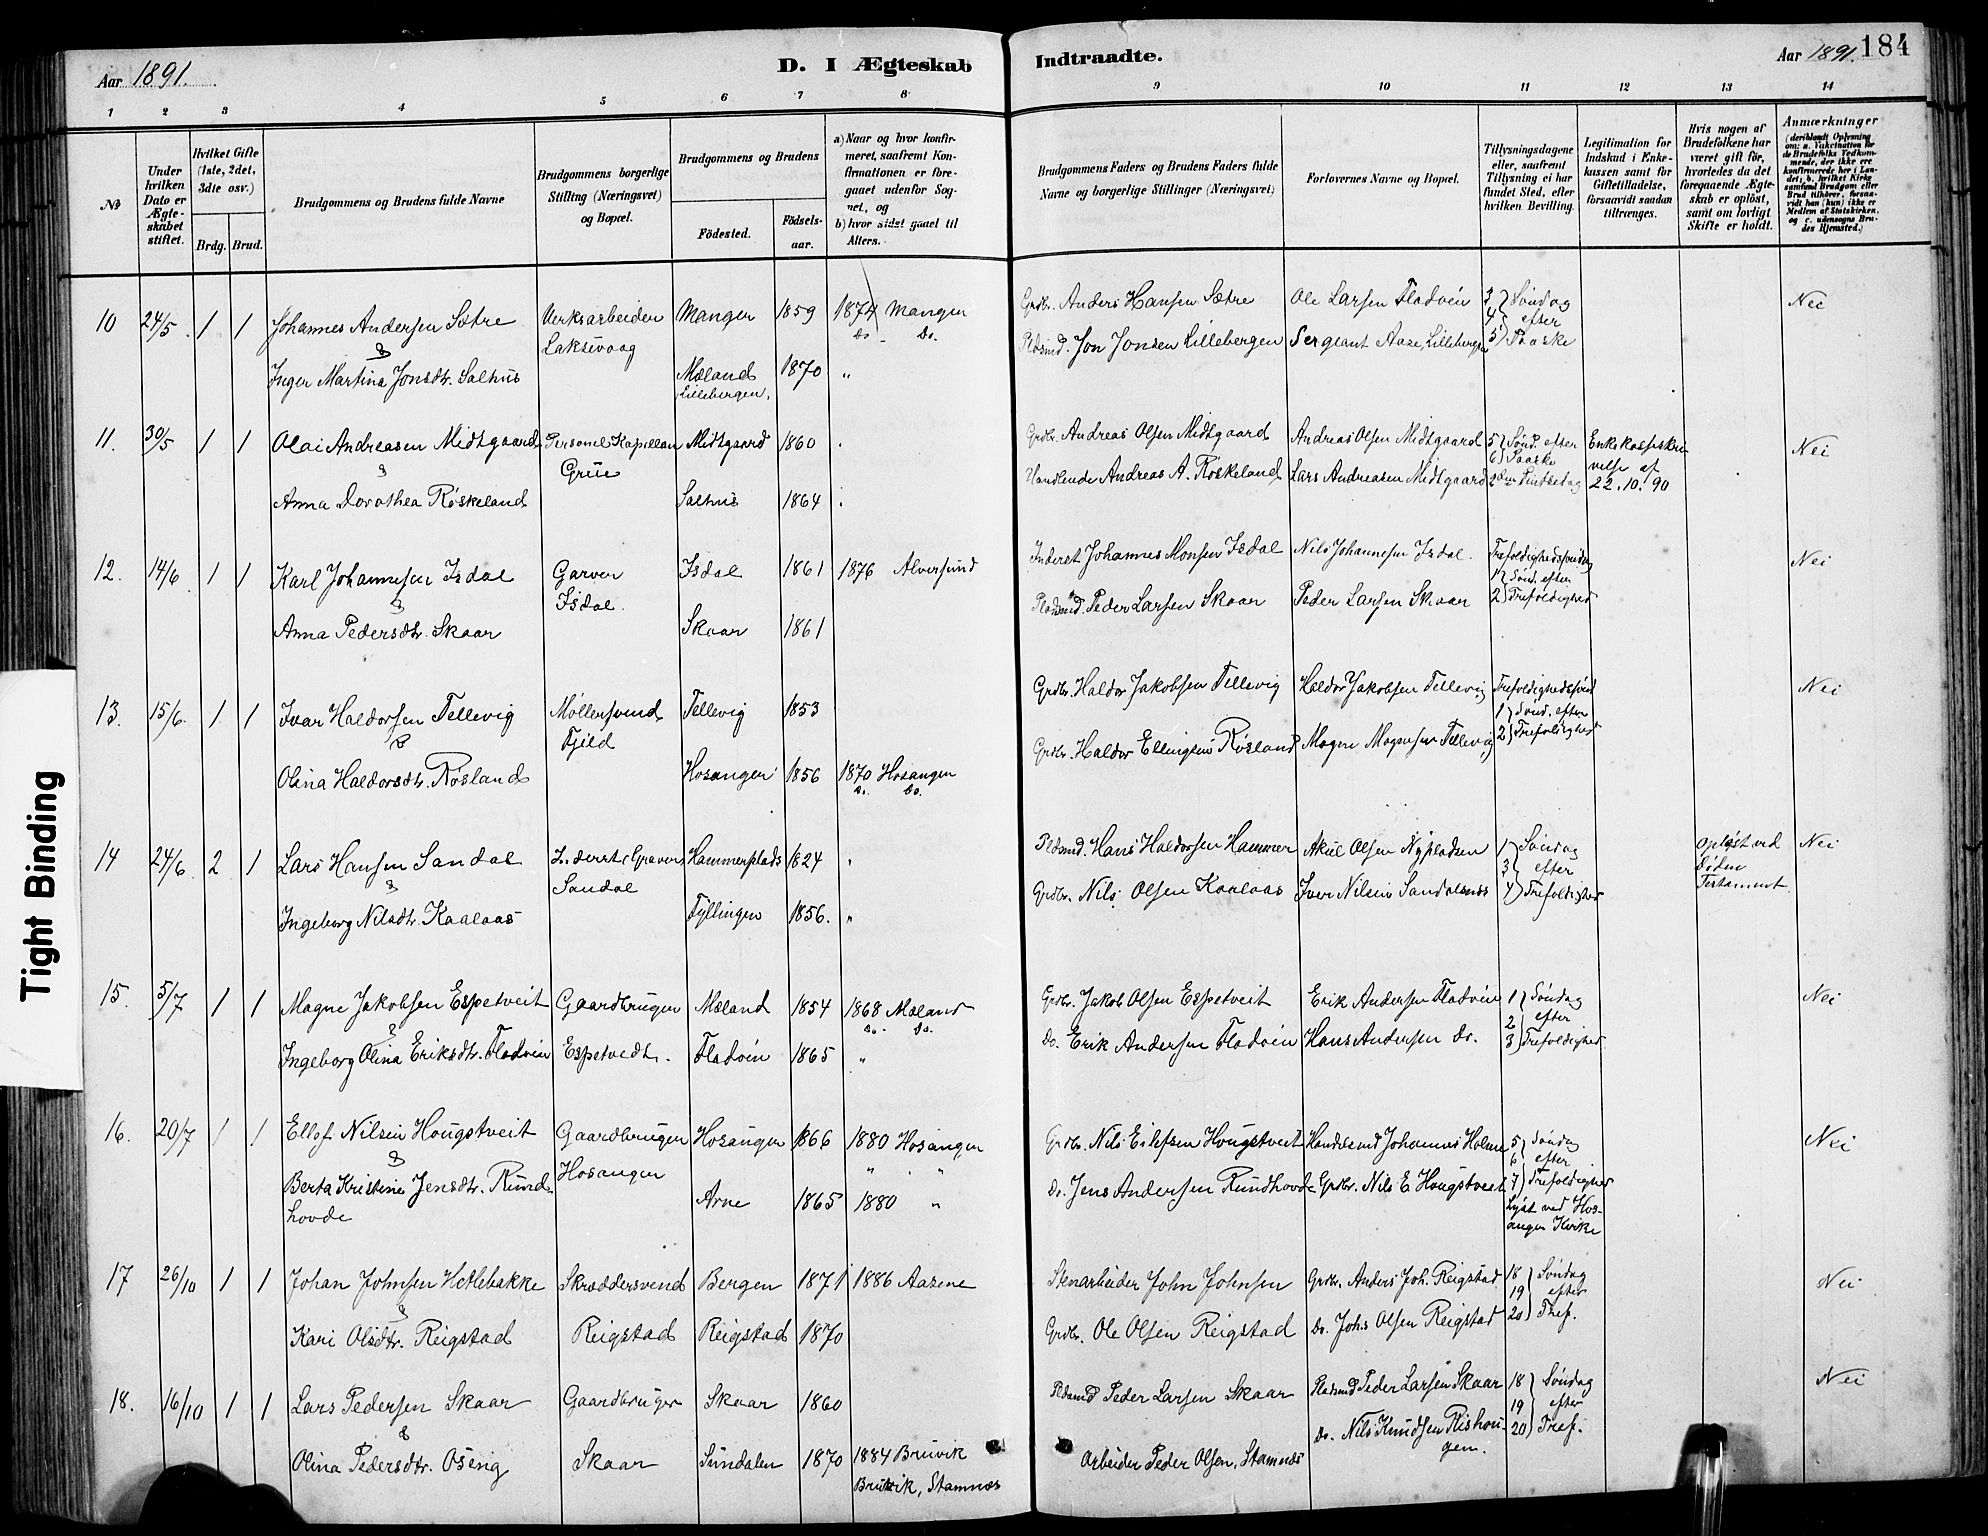 Aar 1891.
D. I Ægteskab Indtraadte.
Aar 1891. 184
1 2 3 4 5 6 7 8 9 10 11 12 13 14
№
Under hvilken Dato er Ægteskabet stiftet.
Hvilket Gifte (1ste, 2det, 3die osv.)
Brdg. Brud.
Brudgommens og Brudens fulde Navne
Brudgommens borgerlige Stilling (Næringsvei) og Bopæl.
Brudgommens og Brudens
Födested. Födselsaar.
a) Naar og hvor konfirmeret, saafremt Konfirmationen er foregaaet udenfor Sognet, og
b) hvor sidst gaaet til Alters.
Brudgommens Faders og Brudens Faders fulde Navne og borgerlige Stillinger (Næringsvei)
Forlovernes Navne og Bopæl.
Tillysningsdagene eller, saafremt Tillysning ei har fundet Sted, efter hvilken Bevilling.
Legitimation for Indskud i Enkekassen samt for Giftetilladelse, forsaavidt saadan tiltrænges.
Hvis nogen af Brudefolkene har været gift før, hvorledes da det foregaaende Ægteskab er oplöst, samt om lovligt Skifte er holdt.
Anmærkninger
10 24/5 1 1 Johannes Andersen Sætre Verksarbeider Manger 1859 1874 Manger Grdbr. Anders Hansen Sætre Ole Larsen Fladvén 3 Söndag Nei
& Laksevaag Do. Do. Pldsmd. Jon Jonsen Lillebergen Sergeant Aase, Lillebergen 4 efter
Inger Martina Jonsdtr. Salhus Mæland 1870 " 5 Paaske
Lillebergen.
11. 30/5 1 1 Olai Andreasen Midtgaard Personel Kapellan Midtgaard 1860 Grdbr. Andreas Olsen Midtgaard Andreas Olsen Midtgaard 5 Sönd. efter Enkekasseskri- Nei
& Grue Handlende Andreas A. Røskeland Lars Andreasen Midtgaard 6 Paaske velse af
Anna Dorothea Røskeland Salhus 1864 2den Pintsedag 22.10.90
12. 14/6 1 1 Karl Johannesen Isdal Garver Isdal 1861 1876 Alversund Inderst Johannes Monsen Isdal Nils Johannesen Isdal. Trefoldighedssøndag Nei
& Isdal. Pladsmd. Peder Larsen Skaar Peder Larsen Skaar 1 Sönd. efter
Anna Pedersdtr. Skaar Skaar 1861 2 Trefoldighed
13. 15/6 1 1 Ivar Haldorsen Tellevig Møllersvend Tellevig 1853 Grdbr. Haldor Jakobsen Tellevig Haldor Jakobsen Tellevig Trefoldighedssönd Nei
& Fjeld Grdbr. Haldor Ellingsen Røsland Mogne Mognesen Tellevig 1 Sönd. efter
Olina Haldorsdtr. Røsland Hosanger 1856 1870 Hosanger 2 Trefoldighed
Do. Do.
14 24/6 2 1 Lars Hansen Sandal Inderst (Graver) Hammerplads 1824 " Pldsmd. Hans Haldorsen Hammer Akill Olsen Nypladsen 1 Söndag Opløst ved Nei
& Sandal Grdbr. Nils Olsen Kaalaas Iver Nilsen Sandalsnes 3 efter Døden
Ingeborg Nilsdtr. Kaalaas Fyllingen 1856. " 4 Trefoldighed Testament.
15. 5/7 1 1 Magne Jakobsen Espetveit Gaardbruger Mæland 1854 1868 Mæland Grdbr. Jakob Olsen Espetveit Erik Andersen Fladvén 1 Söndag Nei
& Do. Do. 2 efter
Ingeborg Olina Eriksdtr. Fladvén Espetvedt. Fladvén 1865 " Do. Erik Andersen Fladvén Hans Andersen Do. 3 Trefoldighed
16. 20/7 1 1 Ellef Nilsen Hougstveit Gaardbruger Hosanger 1866 1880 Hosanger Grdbr. Nils Eilefsen Hougstveit Handelsmd Johannes Holme 5 Söndag Nei
& Hosanger " " 6 efter
Berta Kristine Jensdtr. Rund- Arne 1865 1880 " Do. Jens Andersen Rundhovde Grdbr. Nils E Hougstveit 7 Trefoldighed
hovde Lyst ved Hos-
anger Kirke
17 26/10 1 1 Johan Johnsen Hetlebakke Skræddersvend Bergen 1871 1886 Aasene Stenarbeider John Johnsen Grdbr. Anders Joh. Reigstad 18 Söndag Nei
& 19 efter
Kari Olsdtr. Reigstad Reigstad Reigstad 1870 Grdbr. Ole Olsen Reigstad Do. Johs Olsen Reigstad 20 Tref.
18. 16/10 1 1 Lars Pedersen Skaar Gaardbruger Skaar 1860 Pldsmd Peder Larsen Skaar Pladsmd Peder Larsen Skaar 18 Söndag Nei
& Do. Nils Knudsen Rishou- 19 efter
Olina Pedersdtr. Oseng Skaar Sundalen 1870 1884 Bruvik Arbeider Peder Olsen, Stamnes gen. 20 Tref.
Bruvik, Stamnes
Tight Binding